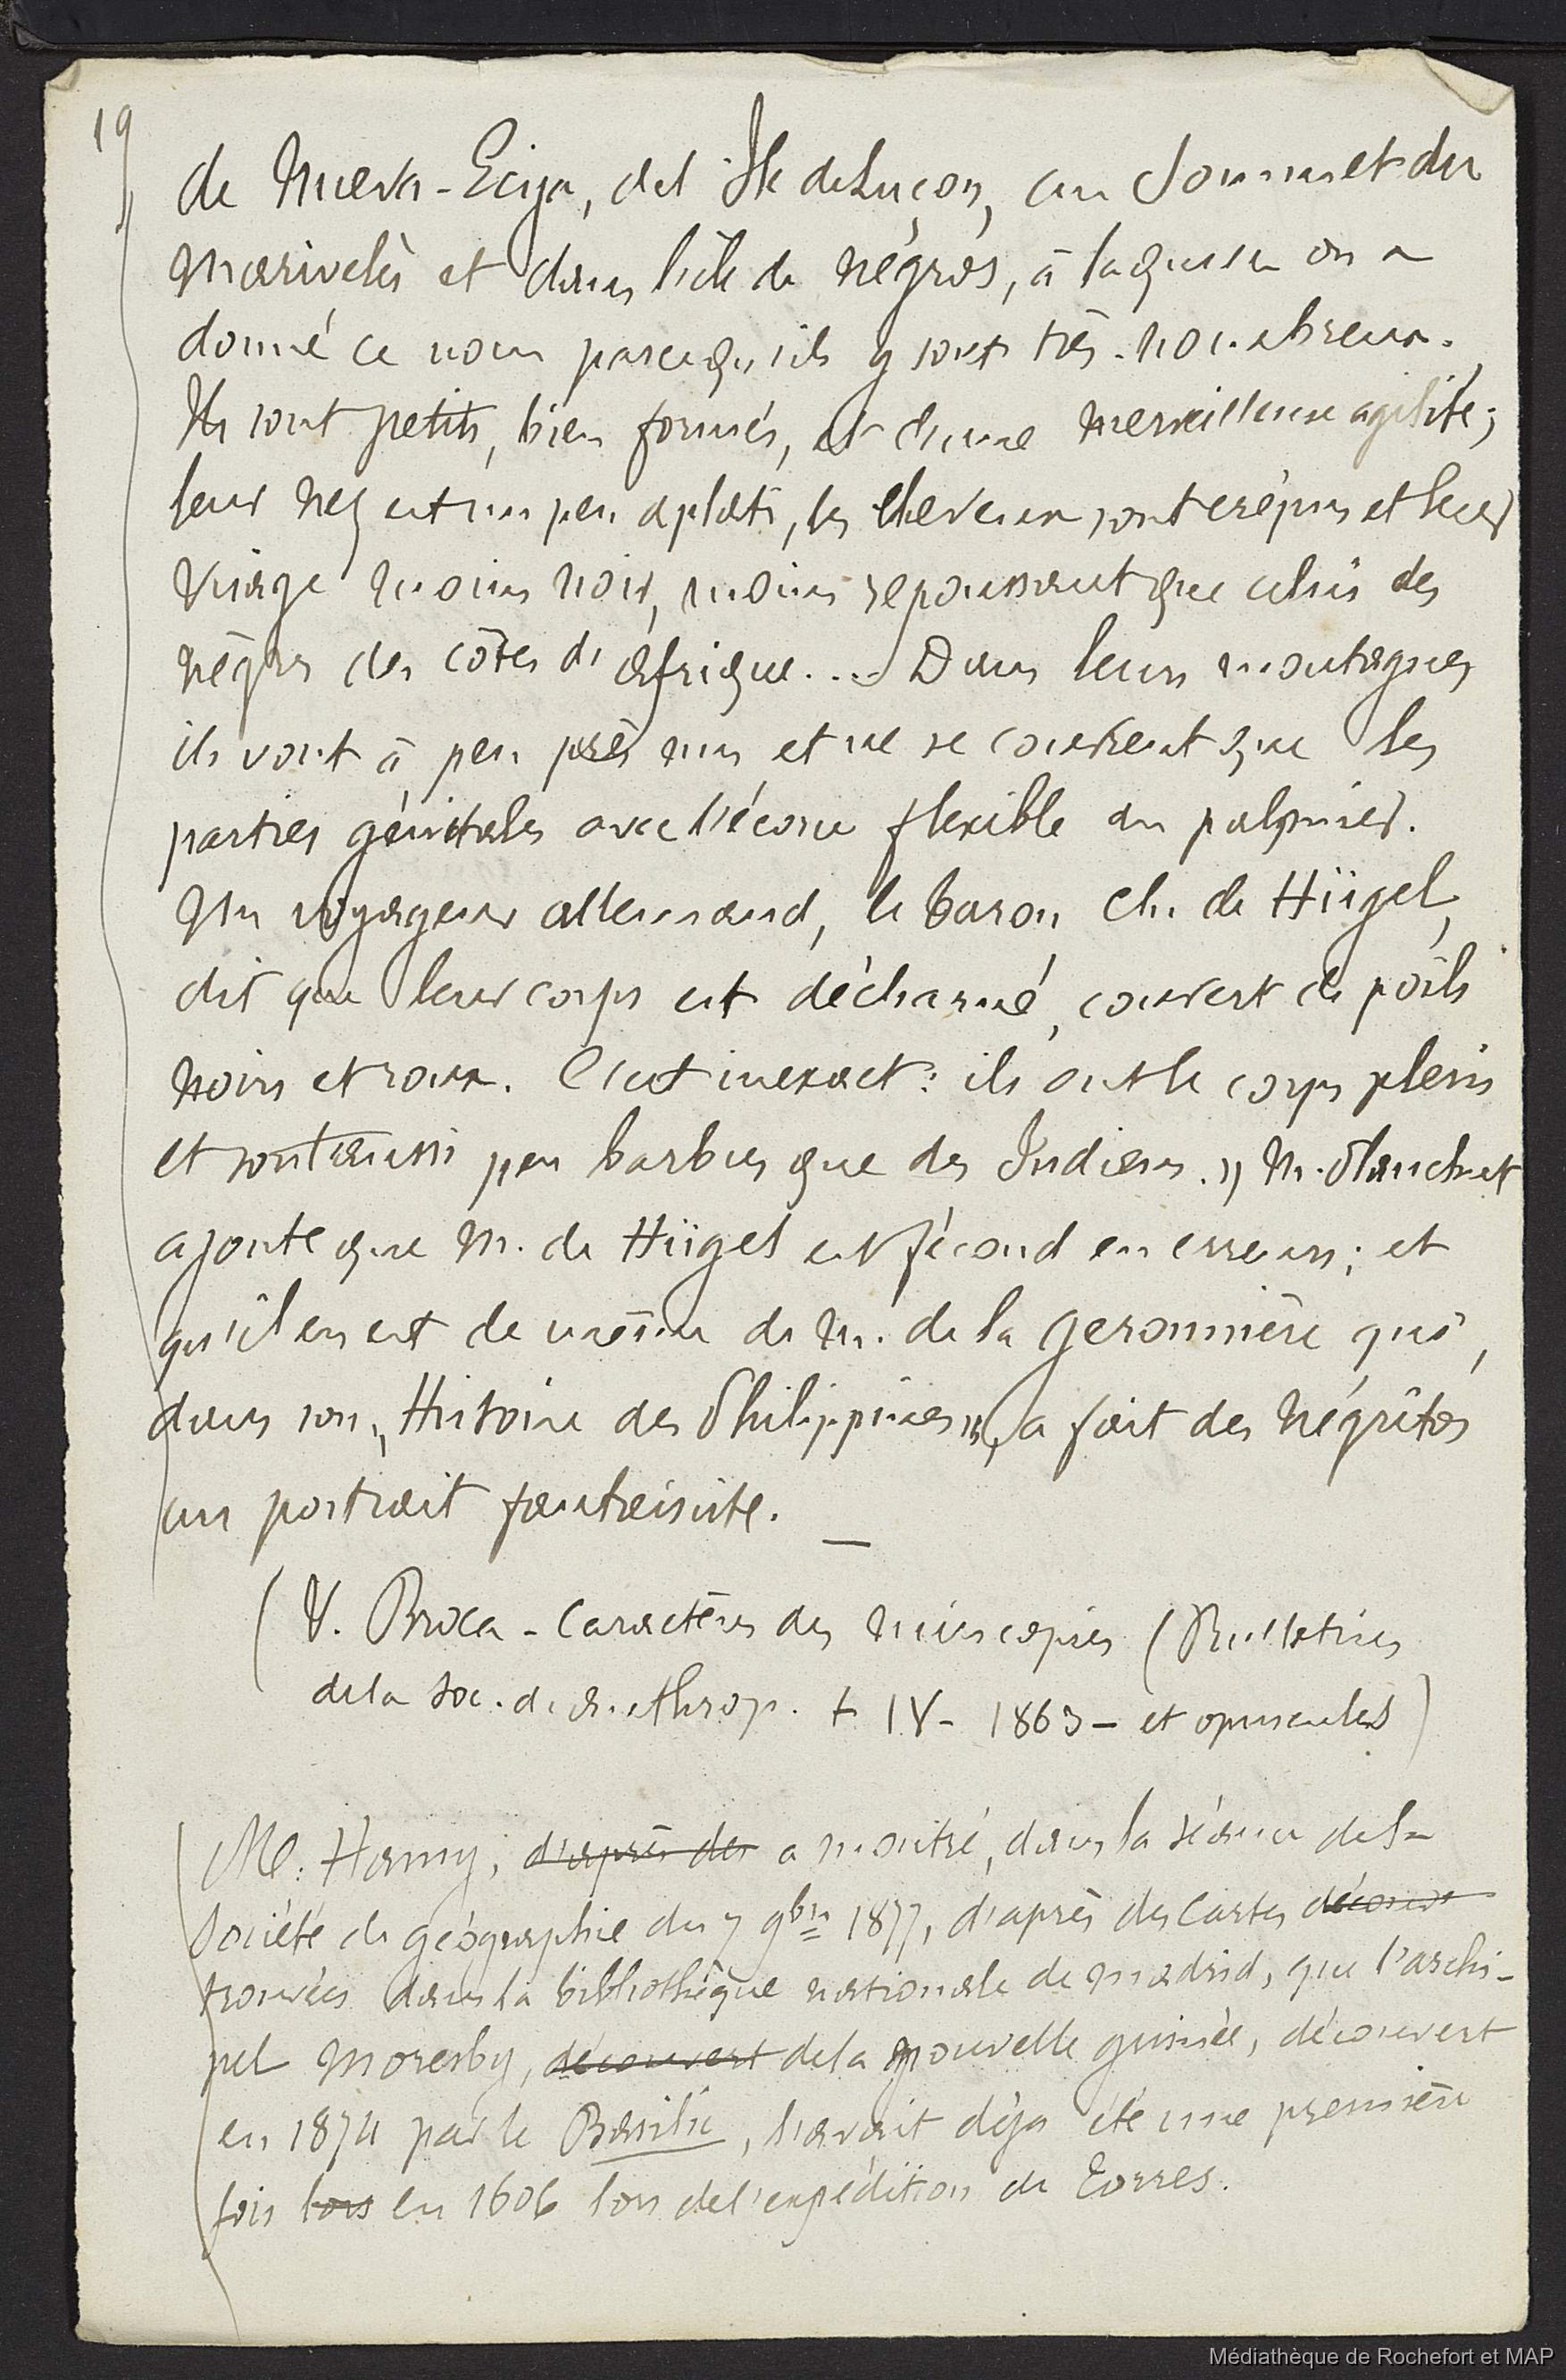 19
de Nueva-Ecija, del Île de Luçon, au Sommet du
Marivelès et dans l'île de Négros, à laquelle on a
donné ce nom parcequ'ils y sont très-nombreux.
Ils sont petits, bien formés, et d'une merveilleuse agilité;
leur nez est un peu aplati, les cheveux sont crépus et leur
visage moins noir, moins repoussant que celui des
nègres des côtes d'afrique.... Dans leurs montagnes
ils vont à peu près nus et ne se couvrent que les
parties génitales avec l'écorce flexible du palmier.
Un voyageur allemand, le baron Ch. de Hügel,
dit que leur corps est décharné, couvert de poils
noirs et roux. C'est inexact: ils ont le corps plein
et sont aussi peu barbus que des Indiens.» M. Planchut
ajoute que M. de Hügel est fécond en erreurs; et
qu'il en est de même de M. de la Geronnière qui,
dans son „Histoire des Philippines", a fait des Négritos
un portrait fantaisiste.
(V. Broca - Caractères des Mincopies (Bulletins
de la Soc. d'anthrop. t IV- 1863- et opuscules)
M. Hamy, d'après des a montré, dans la séance de la
Société de géographie du 7 9bre 1877, d'après des Cartes découv
trouvées dans la bibliothèque nationale de Madrid, que l'archi-
pel Moresby, découvert de la Nouvelle guinée, découvert
en 1874 par le Basilic, l'avait déja été une première
fois lors en 1606 lors de l'expédition de Torres.
Médiathèque de Rochefort et MAP